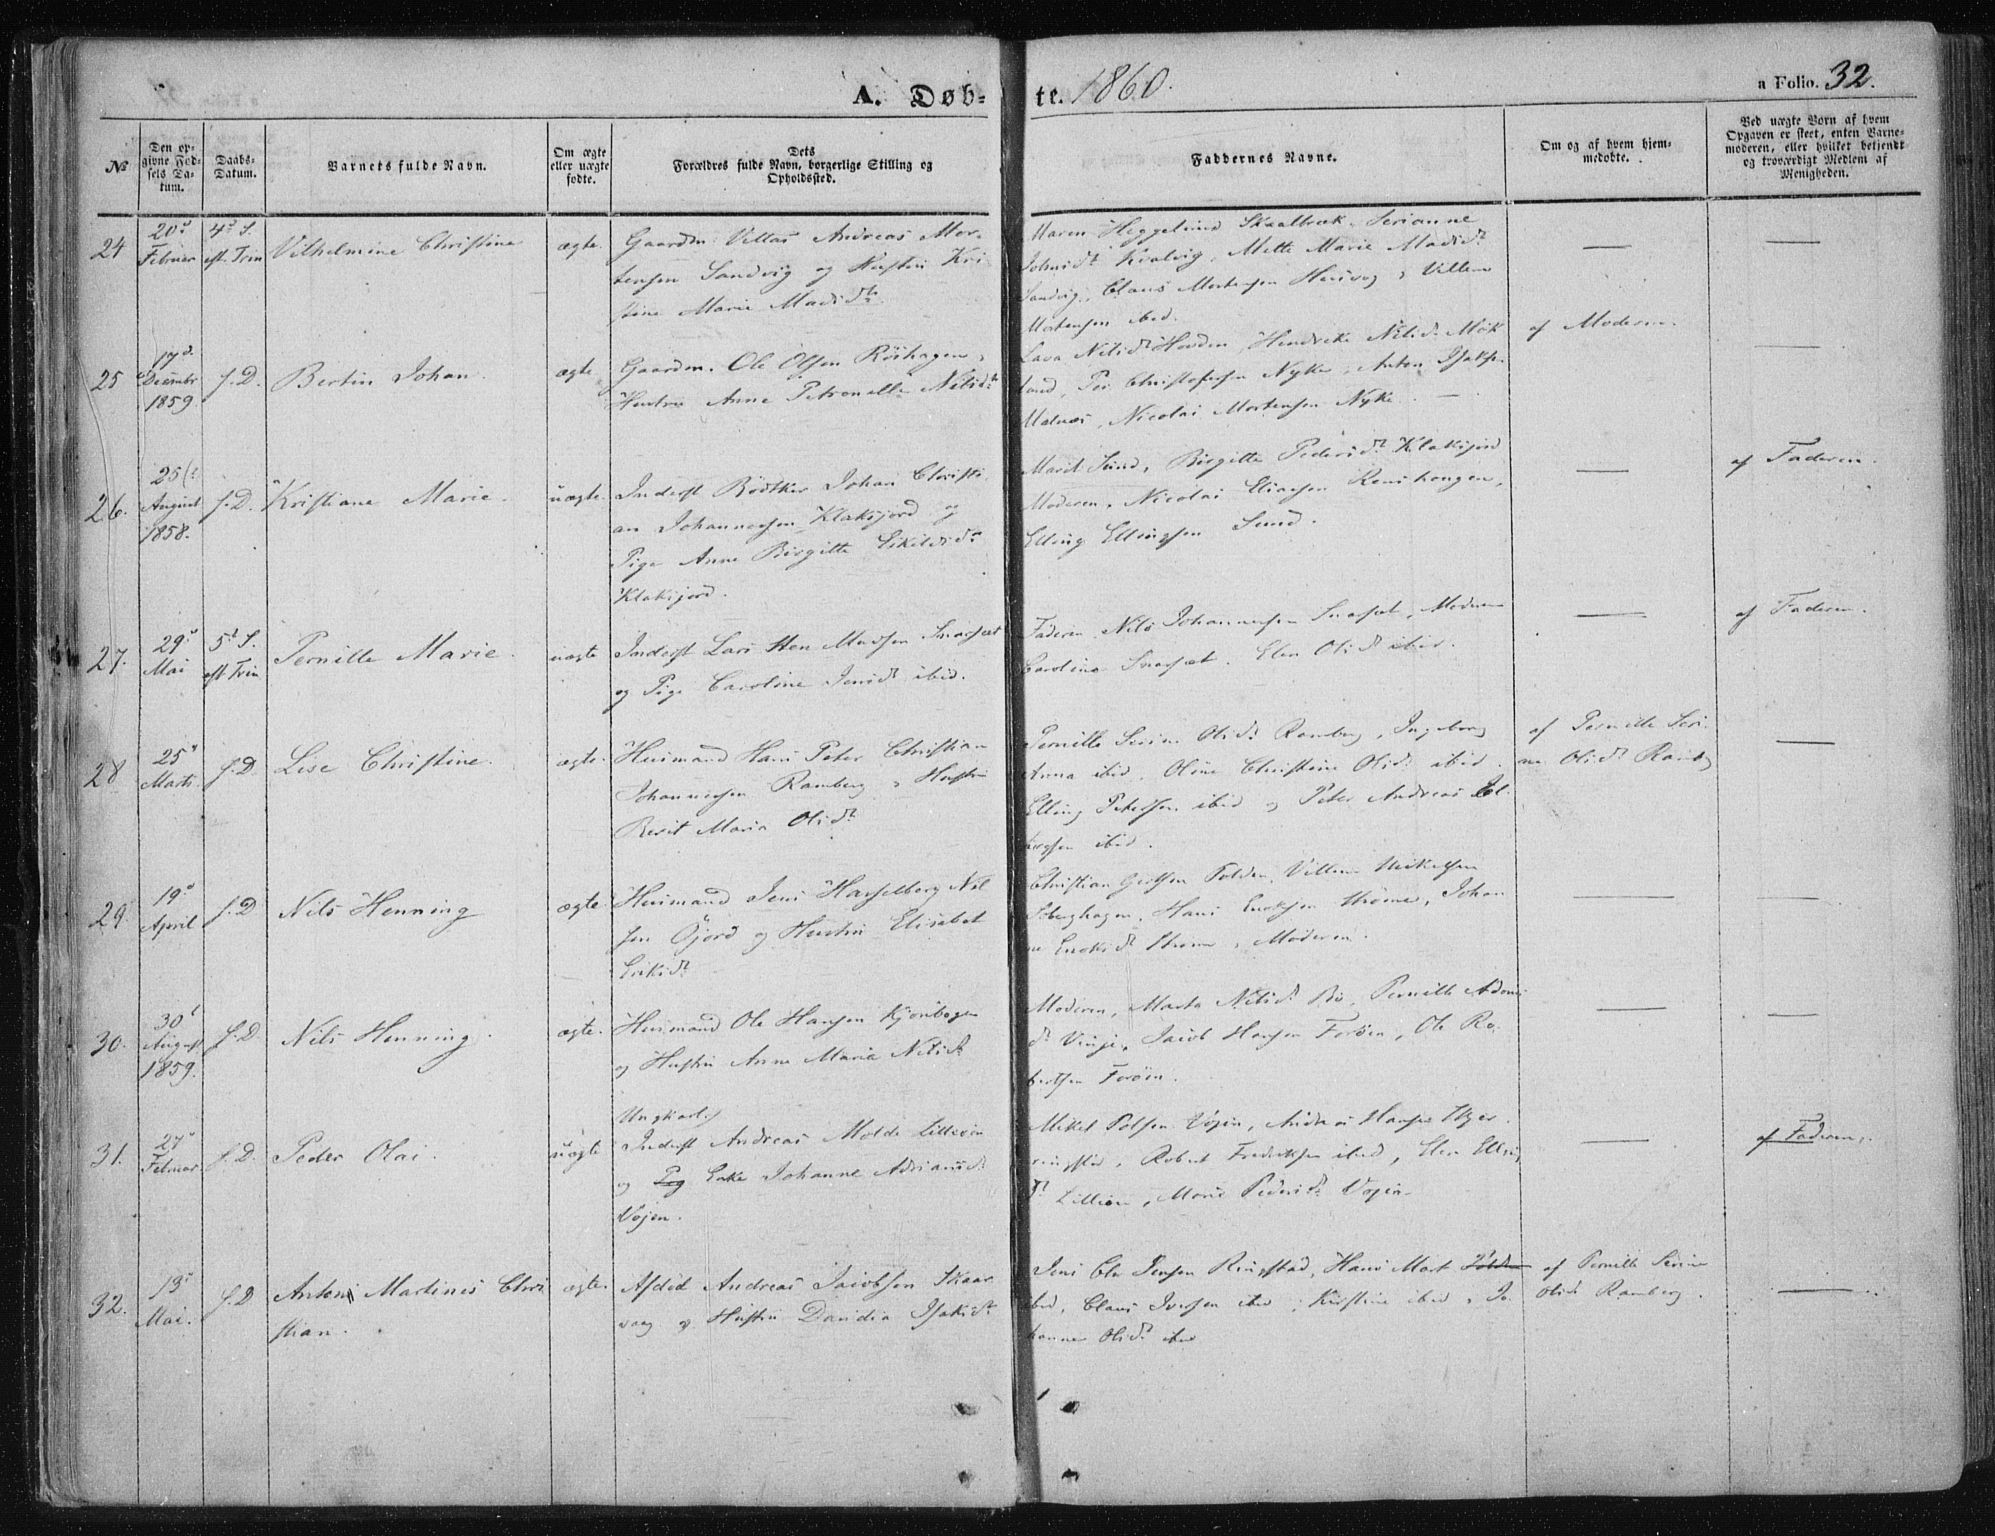 A. Døb-
te. 1860.
a Folio. 32.
No
Den op-
givne Fød-
sels Da-
tum.
Daabs-
Datum.
Barnets fulde Navn.
Om ægte
eller uægte
fødte.
Dets
Forældres fulde Navn, borgerlige Stilling og
Opholdssted.
Faddernes Navne.
Om og af hvem hjem-
medøbte.
Ved uægte Børn af hvem
Opgaven er skeet, enten Barne-
moderen, eller hvilket bekjendt
og troværdigt Medlem af
Menigheden.
24
20de
Februar
4de S.
eft. Trin
Vilhelmine Christine
ægte.
Gaardm. Villas Andreas Mor-
tensen Sandvig og Hustru Kri
stine Marie Madsdtr
Maren Heggelund Skaalbrek, Serianne
Johnsdtr Kvalvig, Mette Marie Madsdtr
Sandvig, Claus Mortensen, Villum
Mortensen ibid.
25
17d.
Decembr
1859.
s. D.
Bertin Johan.
ægte
Gaardm. Ole Olsen Röshagen,
Hustru Anne Petronelle Nilsdtr
Nilsdtr Hovden, Hendrikke Nilsdtr Mök
land, Per Christofersen Nyke, Anton Isaksen
Malnæs, Nicolai Mortensen Nyke.
af Moderen.
26.
25de
August
1858.
s. D.
Kristiane Marie.
uægte.
Inderst Bödtker Johan Christi
an Johannessen Klaksjord og
Pige Anne Birgitte Eskildsdtr
Klaksjord.
Marit Sund, Birgitte Pedersdtr Klaksjord
Moderen, Nicolai Eliassen,
Elling Ellingsen Sund.
af Faderen.
27.
29de
Mai
5te S.
eft Trin
Pernille Marie.
uægte
Inderst Lars Hen Madsen Snarset
og Pige Caroline Jensdtr ibid.
Faderen, Nils Johannessen Snarset, Moderen
Caroline Snarset. Elen Olsdtr ibid.
af Faderen.
28
25de
Marts.
s. D.
Lise Christine.
ægte.
Huusmand Hans Peter Christian
Johannessen Ramberg, Hustru
Berit Maria Olsdtr
Pernille Serine Olsdtr Ramberg, Ingeborg
Anna ibid, Oline Christine Olsdtr ibid.
Elling Petersen ibid og Peter Andreas El-
lingsen ibid.
af Pernille Seri-
ne Olsdtr Ramberg
29.
19de
April
s. D
Nils Henning
ægte
Huusmand Jens Hasselberg Nil
sen Öjord og Hustru Elisabet
Eriksdtr
Christian Folden, Villum Mikelsen
Hans Enoksen Strömme, Johan
ne Enoksdtr, Moderen.
30.
30te
August
1859.
s. D
Nils Henning.
ægte.
Huusmand Ole Hansen Kjörbogen
og Hustru Anne Maria Nilsdtr
Moderen, Marta Nilsdtr Bö, Pernille
dtr Vinje, Jacob Hansen Foröen, Ole Ro-
bertsen Foröen.
31.
27de
Februar.
s. D.
Peder Olai.
uægte
Ungkarl
Inderst Andreas Molde Lilleöen
og Enke Johanne Adriansdtr
Vöjen.
Mikel Polsen Vöjen, Andreas Hansen
ringstad, Robert Fredriksen ibid, Elen Ellings
dtr Lilleöen, Marie Pedersdtr Vöjen
af Faderen.
32.
13de
Mai.
s. D
Anton Martines Chri
stian.
ægte.
Afdöd Andreas Jacobsen Skaar
vaag og Hustru Dandia Isaksdtr
Jens Ole Jensen Ringstad, Hans Mort
ibid, Claus Iversen ibid, Kirstine ibid, Jo-
hanna Olsdtr ibid
af Pernille Serine
Olsdtr Ramberg.